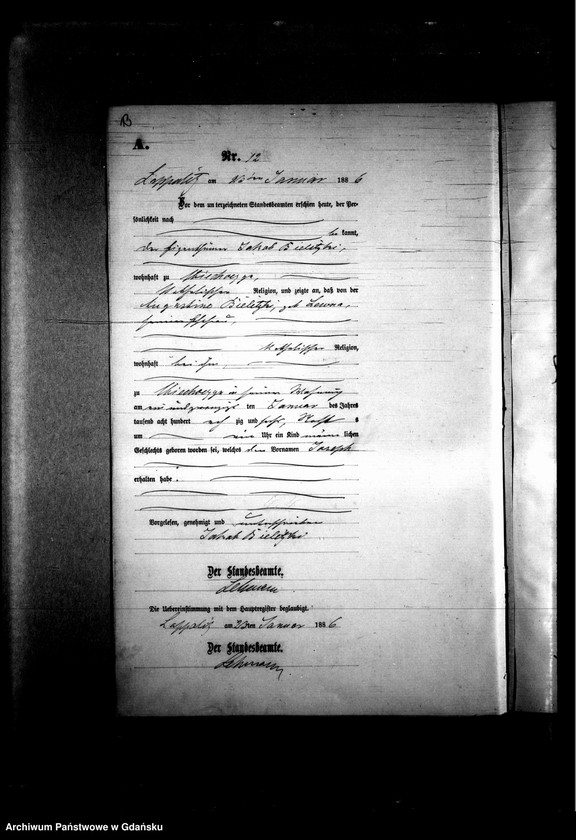 B
A.
Nr. 12
am Januar 1886
Vor dem unterzeichneten Standesbeamten erschien heute, der Per-
sönlichkeit nach
be kannt,
der Eigenthümer Jakob Bieletzki,
wohnhaft zu
katholischer Religion, und zeigte an, daß von der
Augustine Bieletzki, geb.
seiner Ehefrau,
katholischer Religion,
wohnhaft bei ihm,
zu in seiner Wohnung
am ein und zwanzigsten Januar des Jahres
tausend acht hundert achtzig und sechs, Nachts
um ein Uhr ein Kind männlichen
Geschlechts geboren worden sei, welches den Vornamen Joseph
erhalten habe.
Vorgelesen, genehmigt und unterschrieben
Jakob Bieletzki
Der Standesbeamte.
Lehmann
Die Uebereinstimmung mit dem Hauptregister beglaubigt.
am 23ten Januar 1886
Der Standesbeamte.
Lehmann
Archiwum Państwowe w Gdańsku